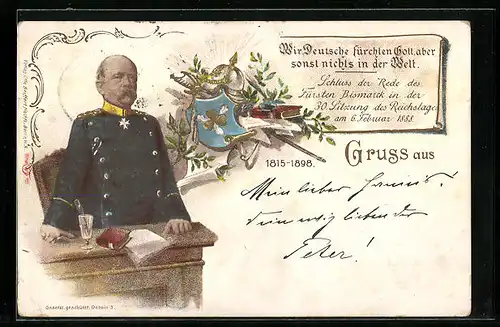 Wir Deutsche fürchten Gott, aber
sonst nichts in der Welt.
Schluss der Rede des
Fürsten Bismarck in der
30. Sitzung des Reichstages
am 6. Februar 1888.
1815-1898.
Gruss aus
Mein lieber
Dein ewig liebender
Peter!
Gesetzl. geschützt. Dessin 3.